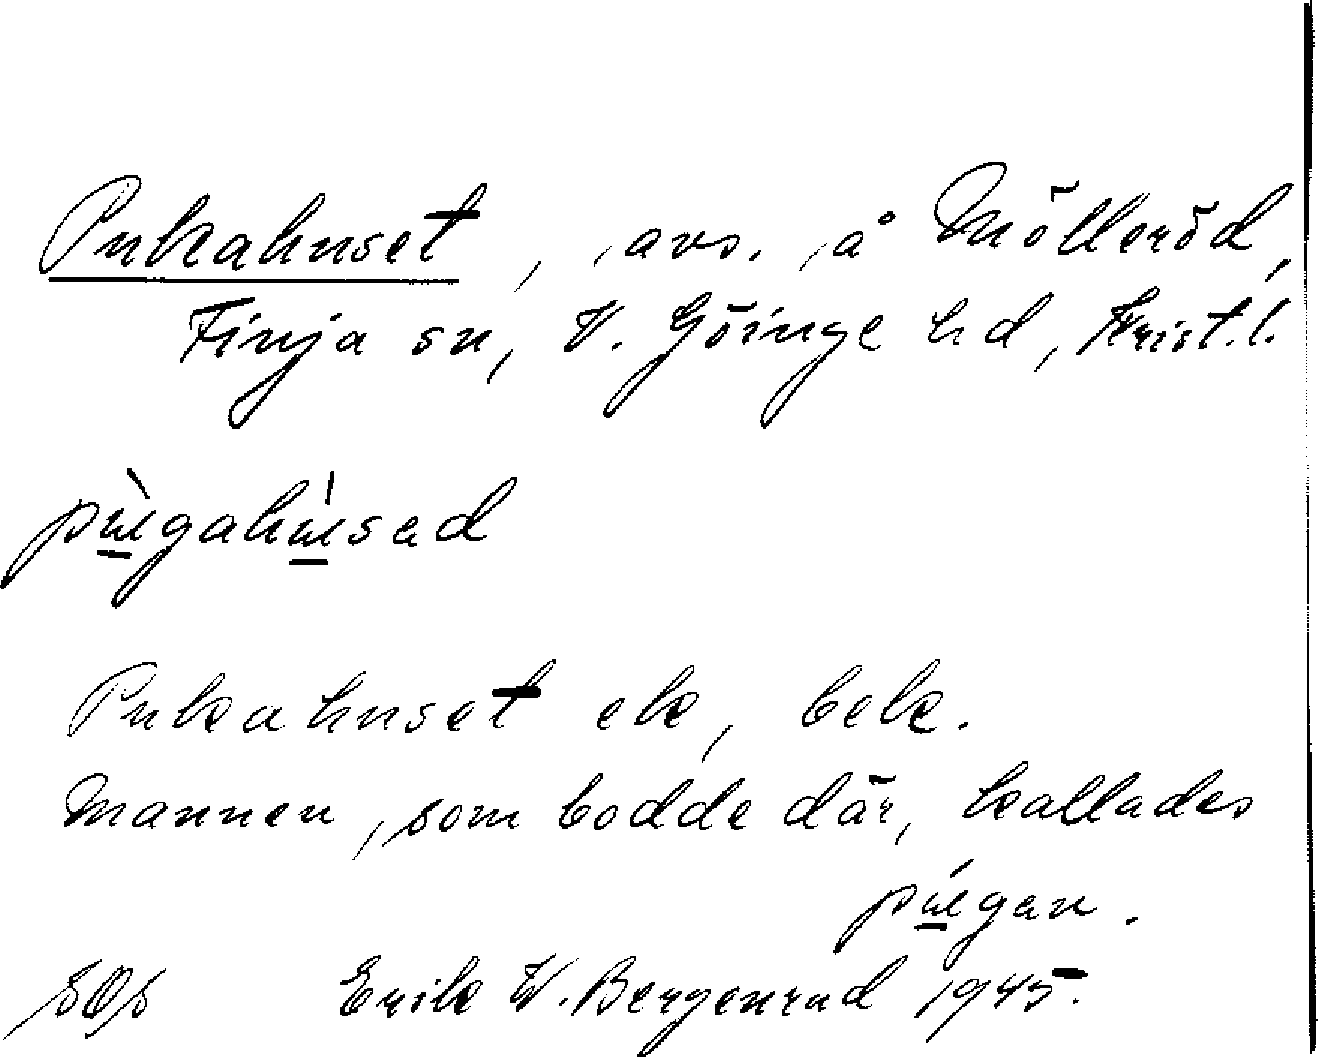 Pukahuset, avs. å Mölleröd,
Finja sn, V. Göinge hd, Krist.l.
pù̲gahú̲sad
Pukahuset ek, bek.
Mannen, som bodde där, kallades
pú̲gan.
SOS Erik W. Bergenrud 1945.